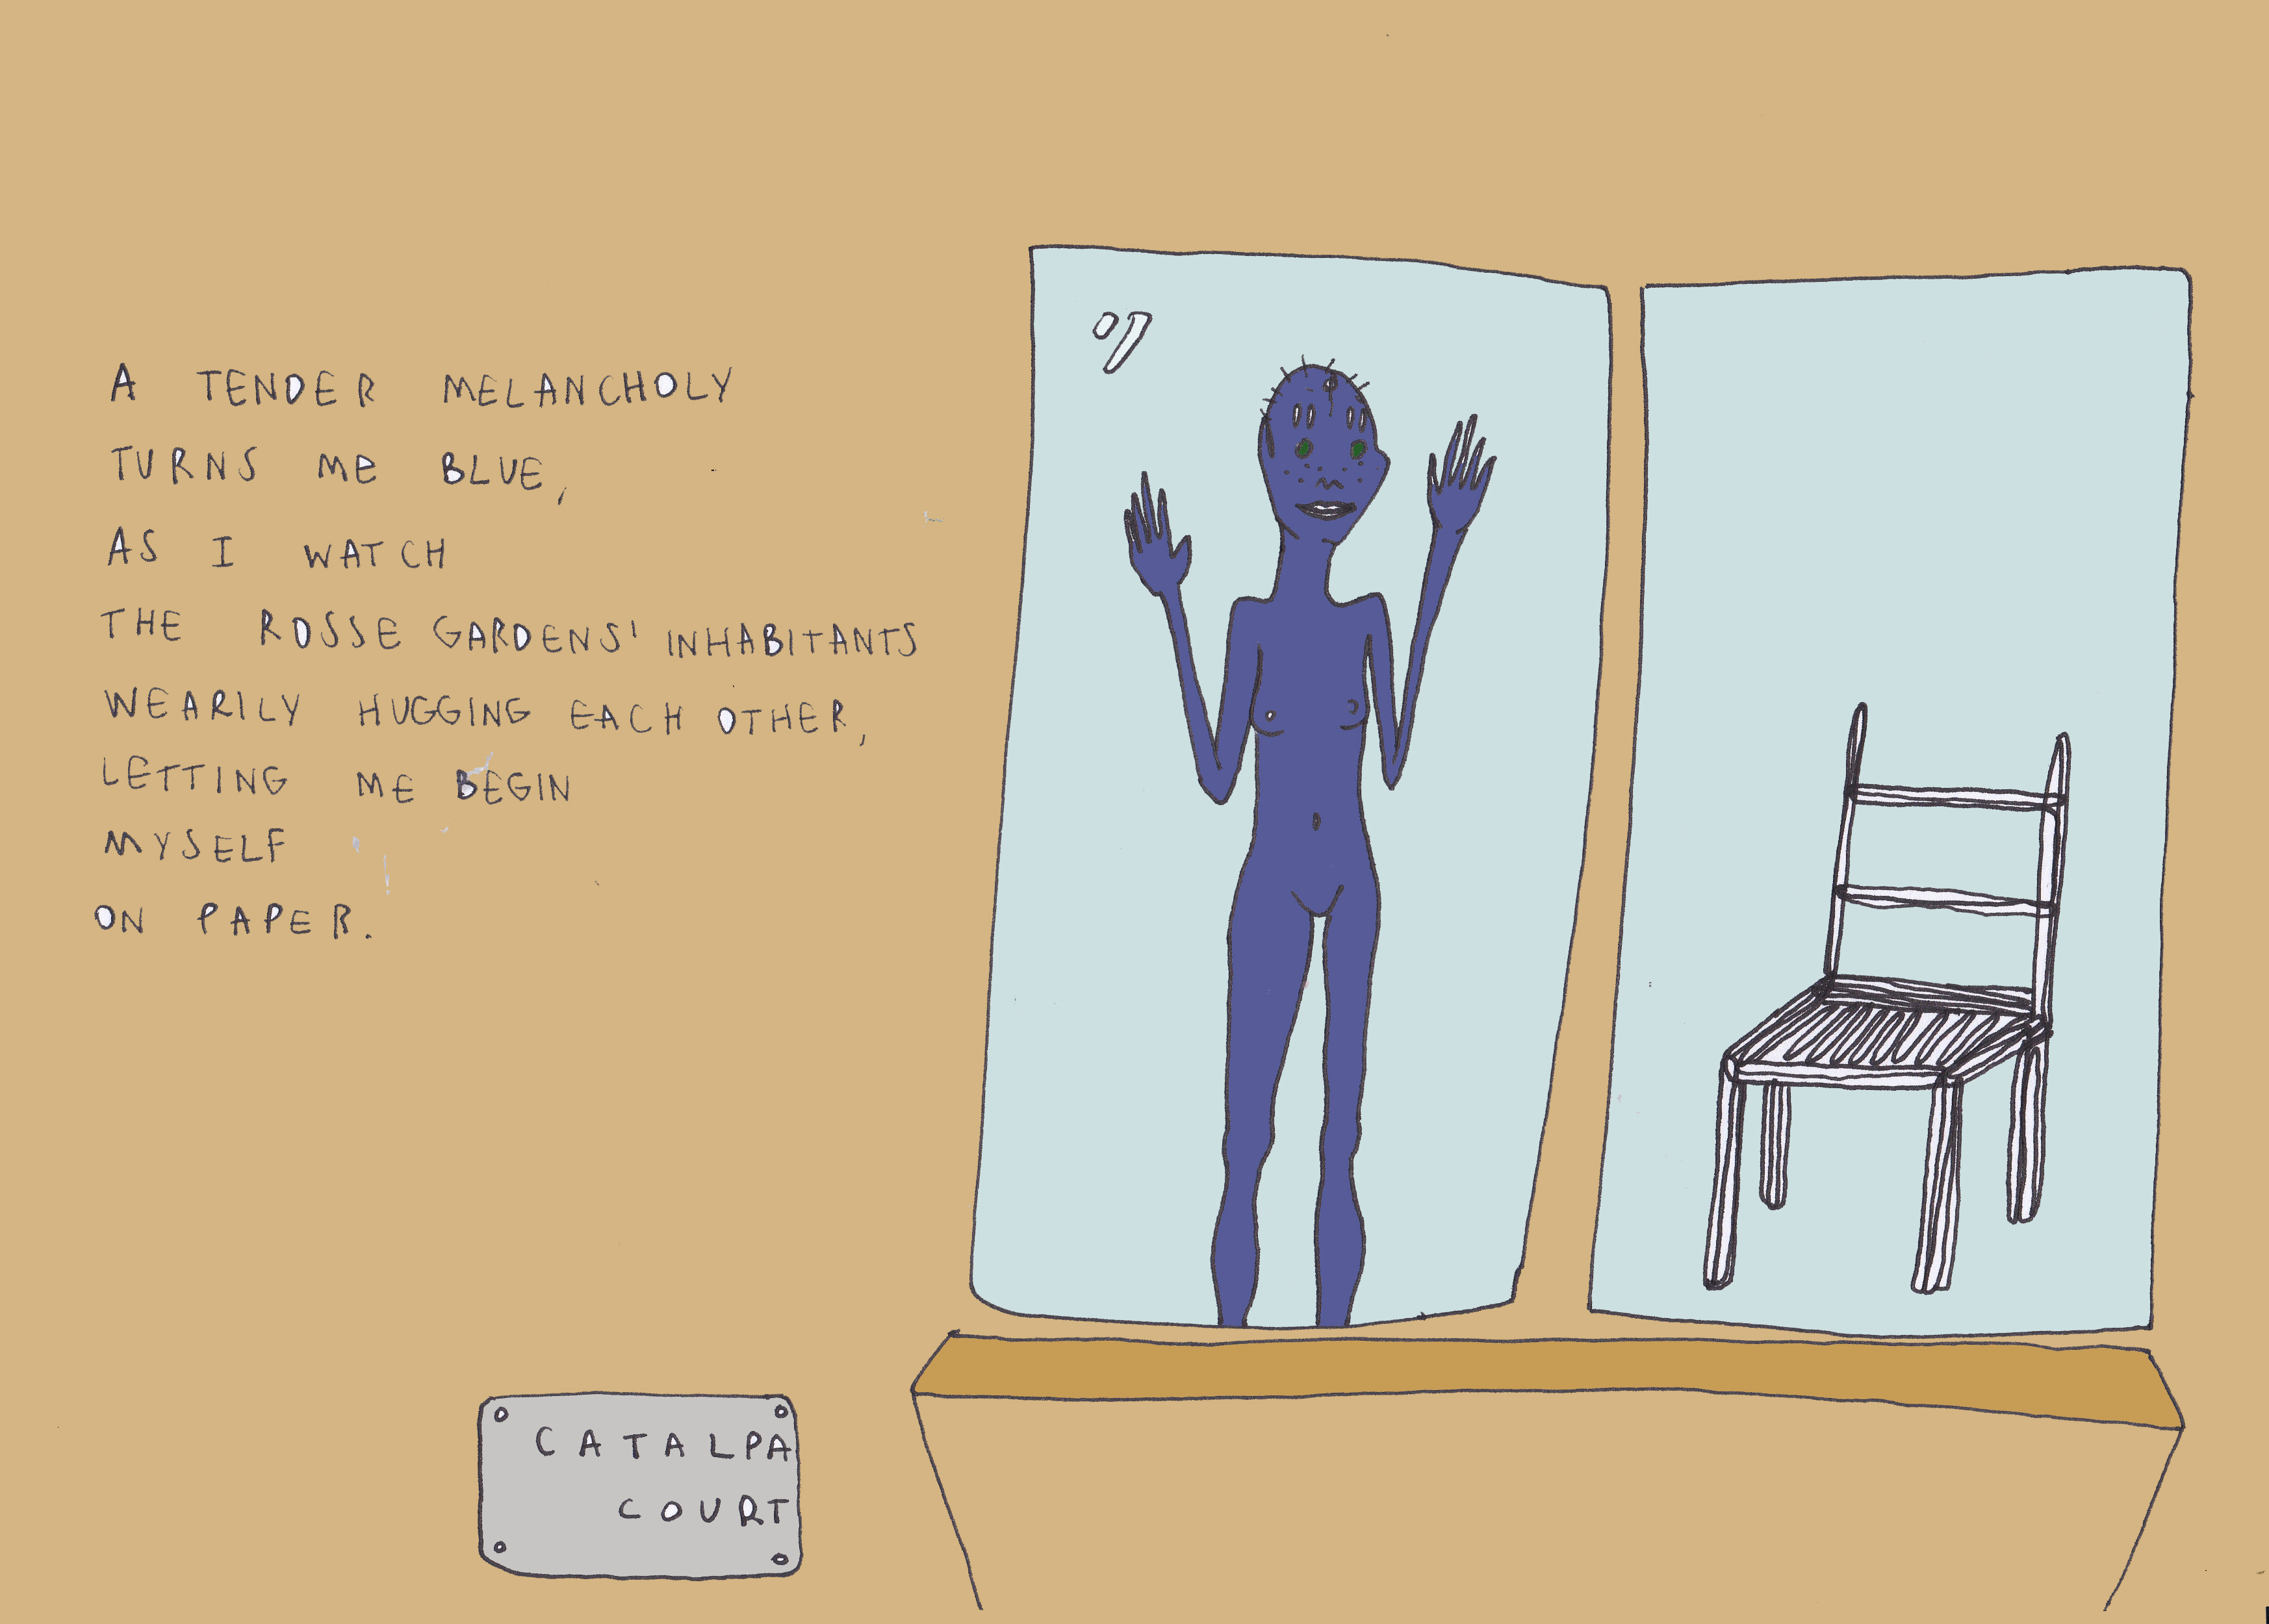 A TENDER MELANCHOLY
TURNS ME BLUE,
AS I WATCH
THE ROSSE GARDENS' INHABITANTS
WEARILY HUGGING EACH OTHER,
LETTING ME BEGIN
MYSELF
ON PAPER.
CATALPA
COURT